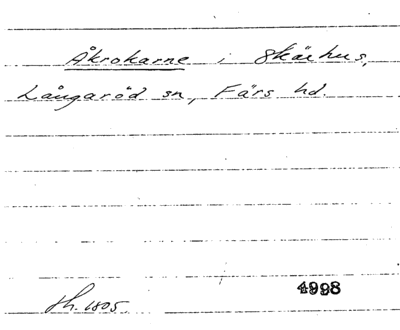 Åkrokarne i Skärhus,
Långaröd sn, Färs hd.
4998
sh. 1805.